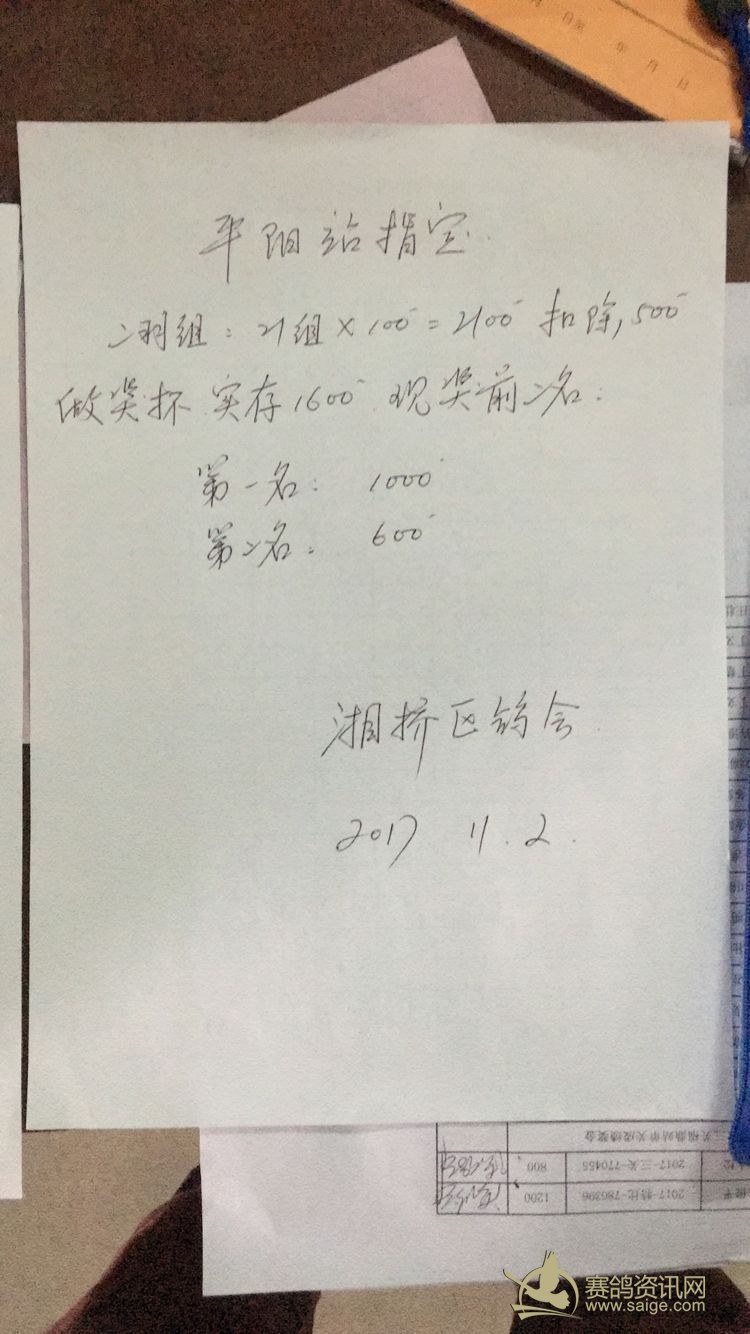 平阳站指定
二羽组：21组×100=2100 扣除,500
做奖杯 实存1600 现奖前二名：
第一名： 1000
第二名： 600
湘桥区鸽会
2017 11.2.
年 月 日
三关福鼎站单关成绩奖金
2017-三关-770455 800
2017-特比-786396 1200
赛鸽资讯网
www.saige.com